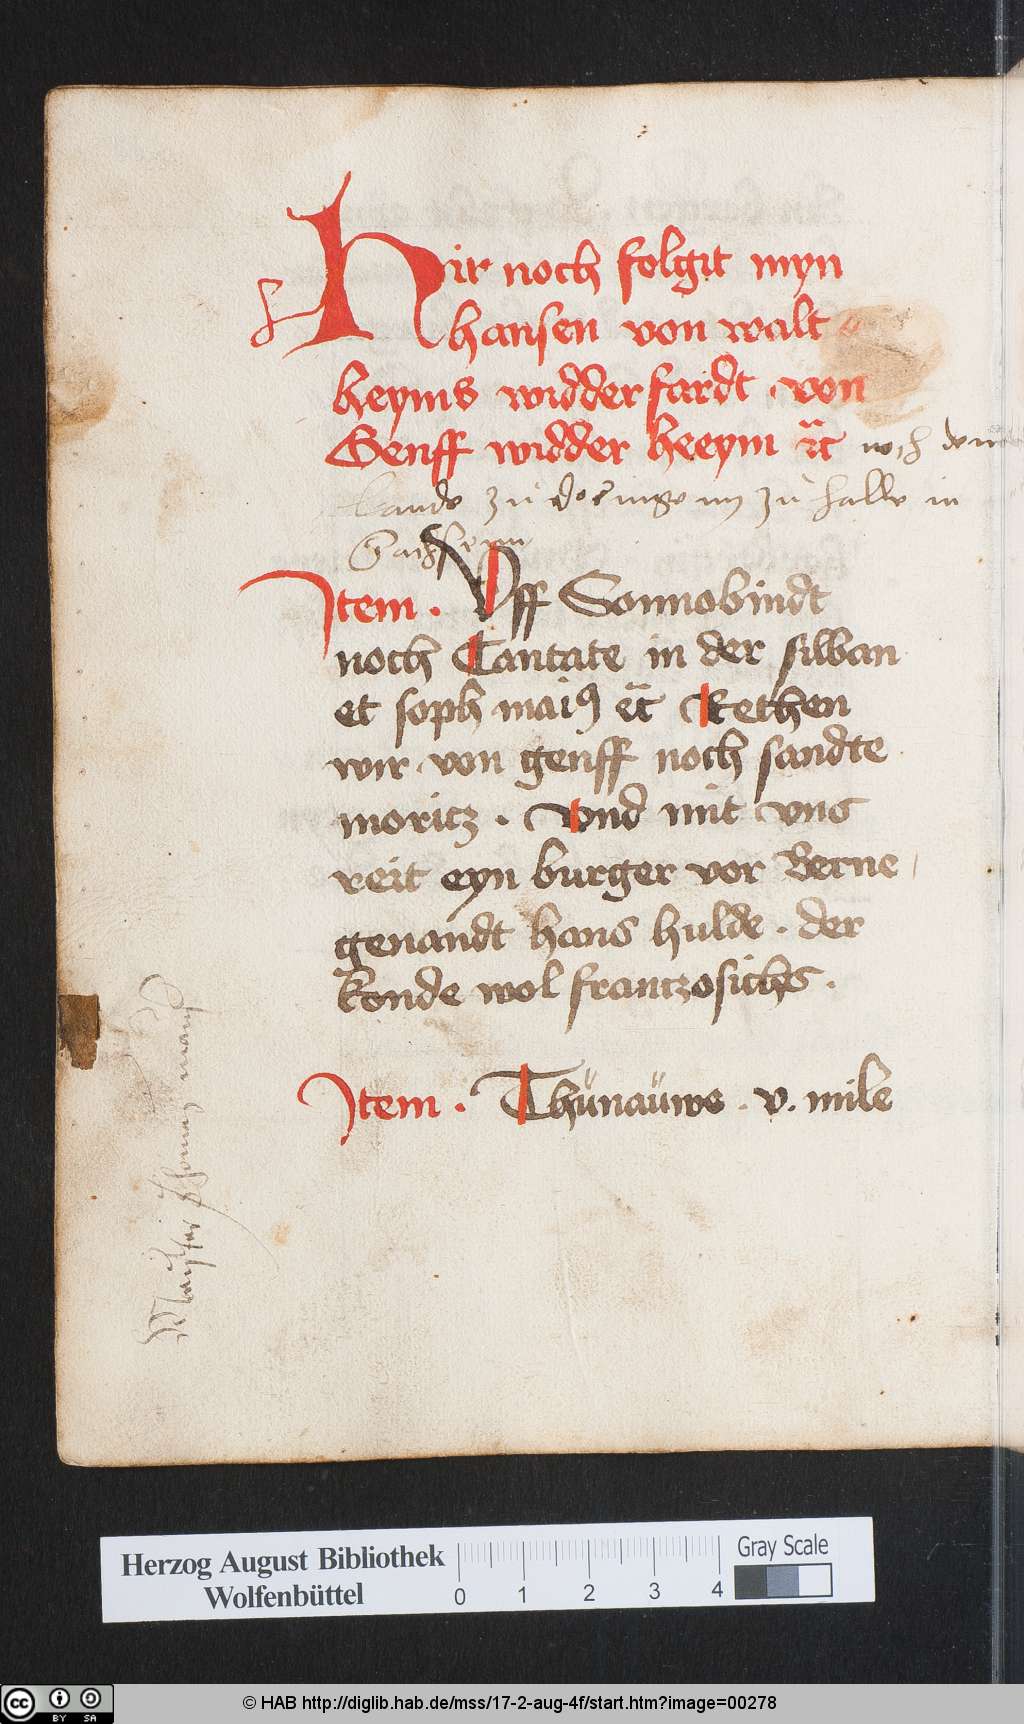 Hir noch folgit myn
hansen von walt
heyms widderfardt . von
Genff widder heeym ꝛc noch dem
lande zu doringenn zu halle in
Sachsenn
Item . Vff Sonnobindt
noch Cantate in der silban
et soph maiꝰ ꝛc Rethen
wir . von genff noch sandte
moricz . vnd mit vns
reit eyn burger vor Berne
genandt hans hulde . der
konde wol frantzosichs .
Item . Thünaüwe . v. mile
Meister Thomas
Herzog August Bibliothek
Wolfenbüttel
0 1 2 3 4
Gray Scale
cc BY SA
© HAB http://diglib.hab.de/mss/17-2-aug-4f/start.htm?image=00278